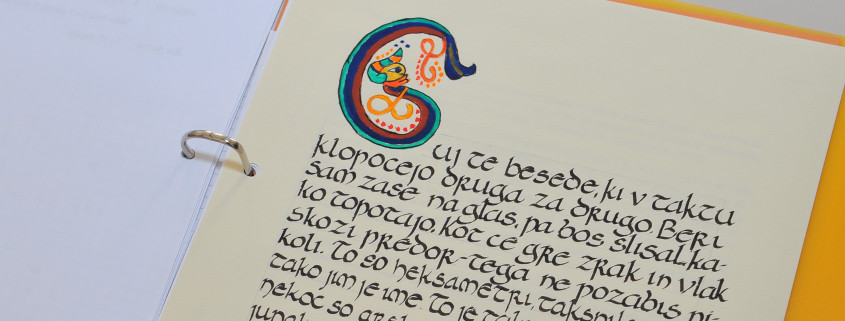 Cuj te besede, ki v taktu
klopocejo druga za drugo. Beri
sam zase na glas, pa bos slisal, ka-
ko topotajo, kot ce gre zrak in vlak
skozi predor - tega ne pozabis ni-
koli. To so heksametri, taksni
tako jim je ime. To je
nekoc so